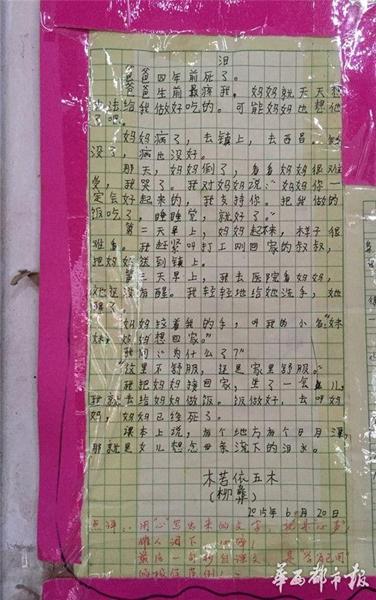 泪
爸爸四年前死了。
爸爸生前最疼我，妈妈就天天想
办法给我做好吃的。可能妈妈也想他
了吧。
妈妈病了，去镇上，去西昌。钱
没了，病也没好。
那天，妈妈倒了，看看妈妈很难
受，我哭了。我对妈妈说：“妈妈你一
定会好起来的，我支持你。把我做的
饭吃了，睡睡觉，就好了。”
第二天早上，妈妈起来，样子很
难看。我赶紧叫打工刚回家的叔叔，
把妈妈送到镇上。
第三天早上，我去医院看妈妈，
她还没有醒。我轻轻地给她洗手，她
醒了。
妈妈拉着我的手，叫我的小名“妹
妹，妈妈想回家。”
我问：“为什么了？”
“这里不舒服，还是家里舒服。”
我把妈妈接回家，坐了一会儿，
我就去给妈妈做饭。饭做好，去叫妈
妈，妈妈已经死了。
课本上说，有个地方有个日月潭，
那就是女儿想念母亲流下的泪水。
木苦依五木
（柳彝）
2015年6月20日
点评：用心写出来的文字
催人泪下
最后一句
华西都市报